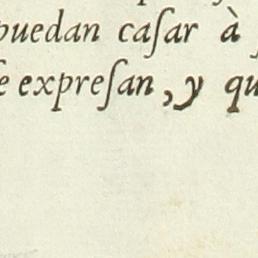 puedan caſar à
e expreſan, y qu